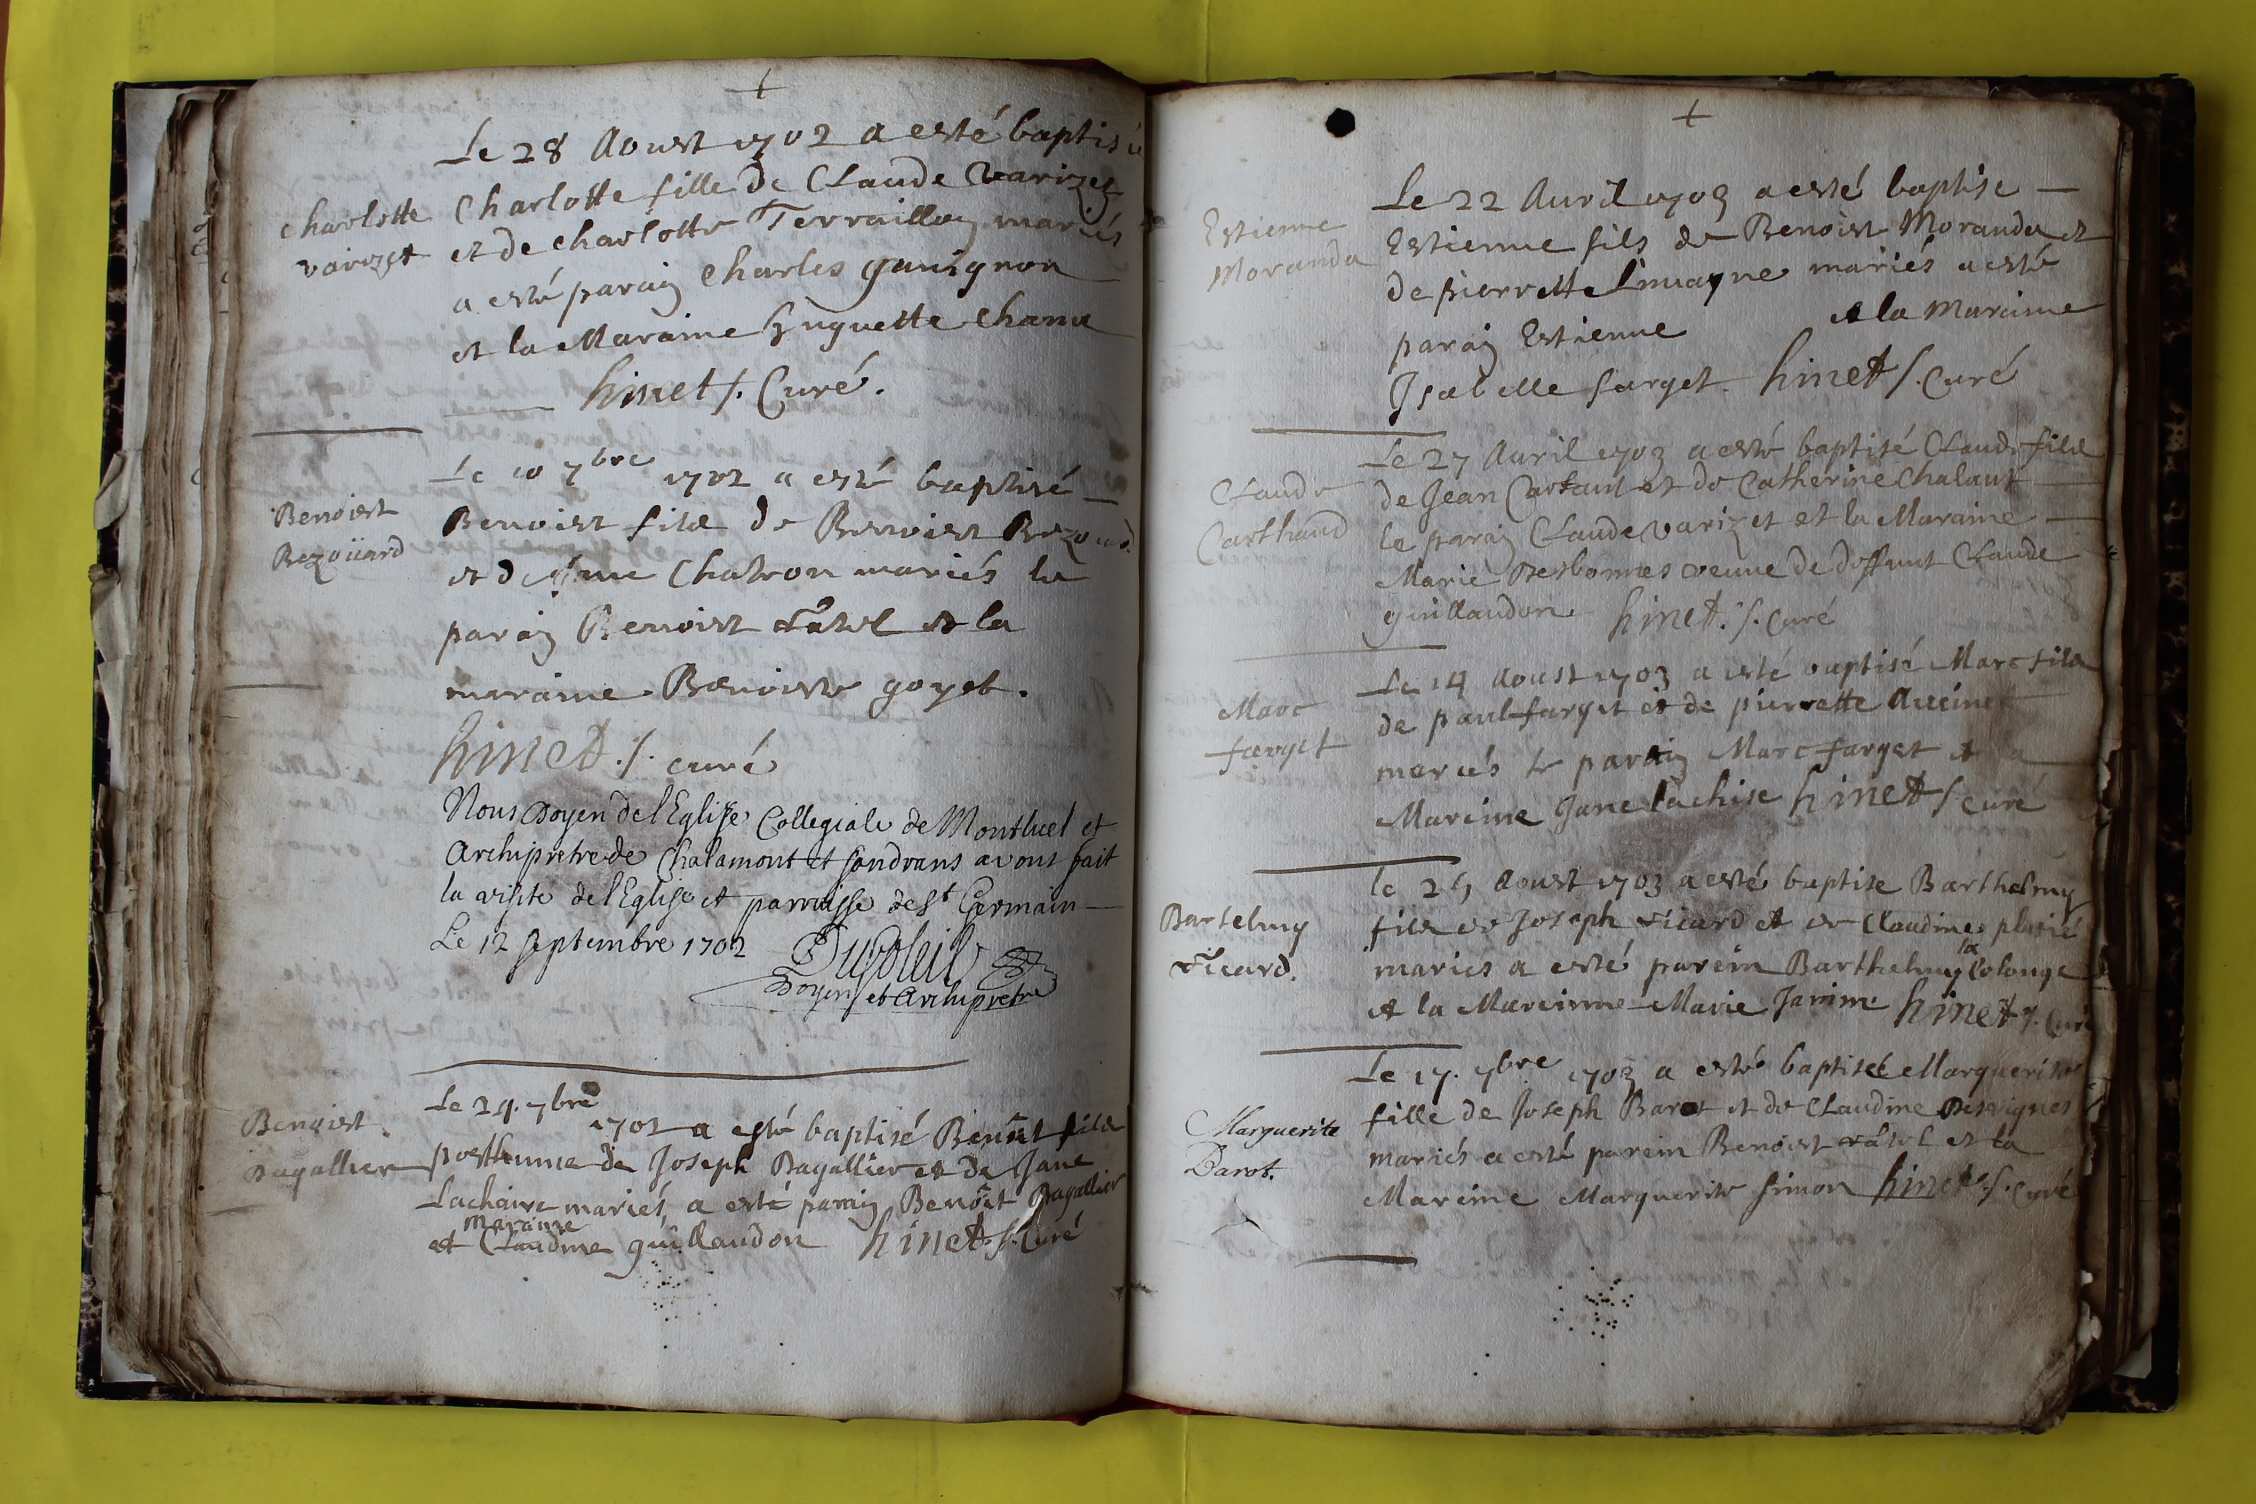 Le 28 Aoust 1702 a esté baptisée
Charlotte fille de Claude Varizet
et de charlotte Terraillon mariés
a esté parain Charles gauignon
et la Maraine huguette Chana
hinet s. Curé.
Charlotte
varizet
Le 10 7bre 1702 a esté baptisé
Benoist fils de Benoist Bezouard
et de Chatron mariés le
parain Benoist ratel et la
maraine Benoiste goyet.
hinet s. curé
Benoist
Bezoüard
Nous Doyen de l'Eglise Collegiale de Montluel et
Archipretre de Chalamont et Sandrans avons fait
la visite de l'Eglise et parroisse de St Germain
Le 12 Septembre 1702
Dusoleil
Doyen et Archipretre
Le 29. 7bre
1702 a esté baptisé Benoît fils
posthume de Joseph Bagallier et de Jane
Lachaire mariés, a esté parain Benoît Bagallier
Maraine
et Claudine guillaudon hinet s. Curé
Benoist
Bagallier
Le 22 Auril 1703 a esté baptise
Estienne fils de Benoist Moranda et
de pierrette mariés a esté
parain Estienne et la Maraine
Isabelle farget hinet s. Curé
Estienne
Moranda
Le 27 Auril 1703 a esté baptisé Claude fils
de Jean Cartaut et de Catherine Chalant
le parain Claude Varizet et la Maraine
Marie Desbonnes veuue de deffunt Claude
guillaudon hinet. s. curé
Claude
Carthaud
Le 14 Aoust 1703 a esté baptisé Marc fils
de paul farget et de pierrette
mariés le parain Marc farget et la
Mareine Jane lachise hinet s curé
Marc
farget
le 25 Aoust 1703 a esté baptise Barthelmy
fils de Joseph vicard et de Claudine
mariés a esté parein Barthelmy la Colonge
et la Mareinne Marie Janine hinet s. Curé
Bartelmy
vicard.
Le 17. 7bre 1703 a esté baptiseé Marguerite
fille de Joseph Barot et de Claudine Desvignes
mariés a esté parein Benoist ratel et la
Mareine Marguerite simon hinet s. curé
Marguerite
Barot.